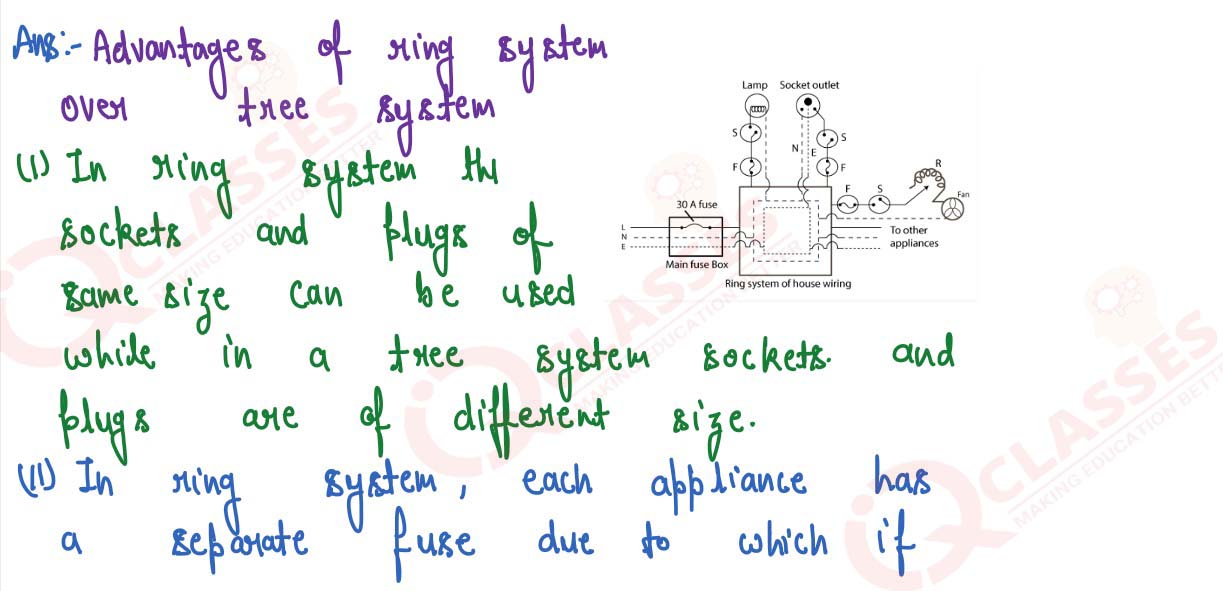 Ans:- Advantages of ring system
over tree system
(I) In ring system the
sockets and plugs of
same size can be used
while in a tree system sockets. and
plugs are of different size.
(II) In ring system, each appliance has
a separate fuse due to which if
Lamp Socket outlet
S
S
N
E
F
F
R
F
S
Fan
30 A fuse
L
N
E
To other
appliances
Main fuse Box
Ring system of house wiring
IQ CLASSES
MAKING EDUCATION BETTER
IQ CLASSES
MAKING EDUCATION BETTER
IQ CLASSES
MAKING EDUCATION BETTER